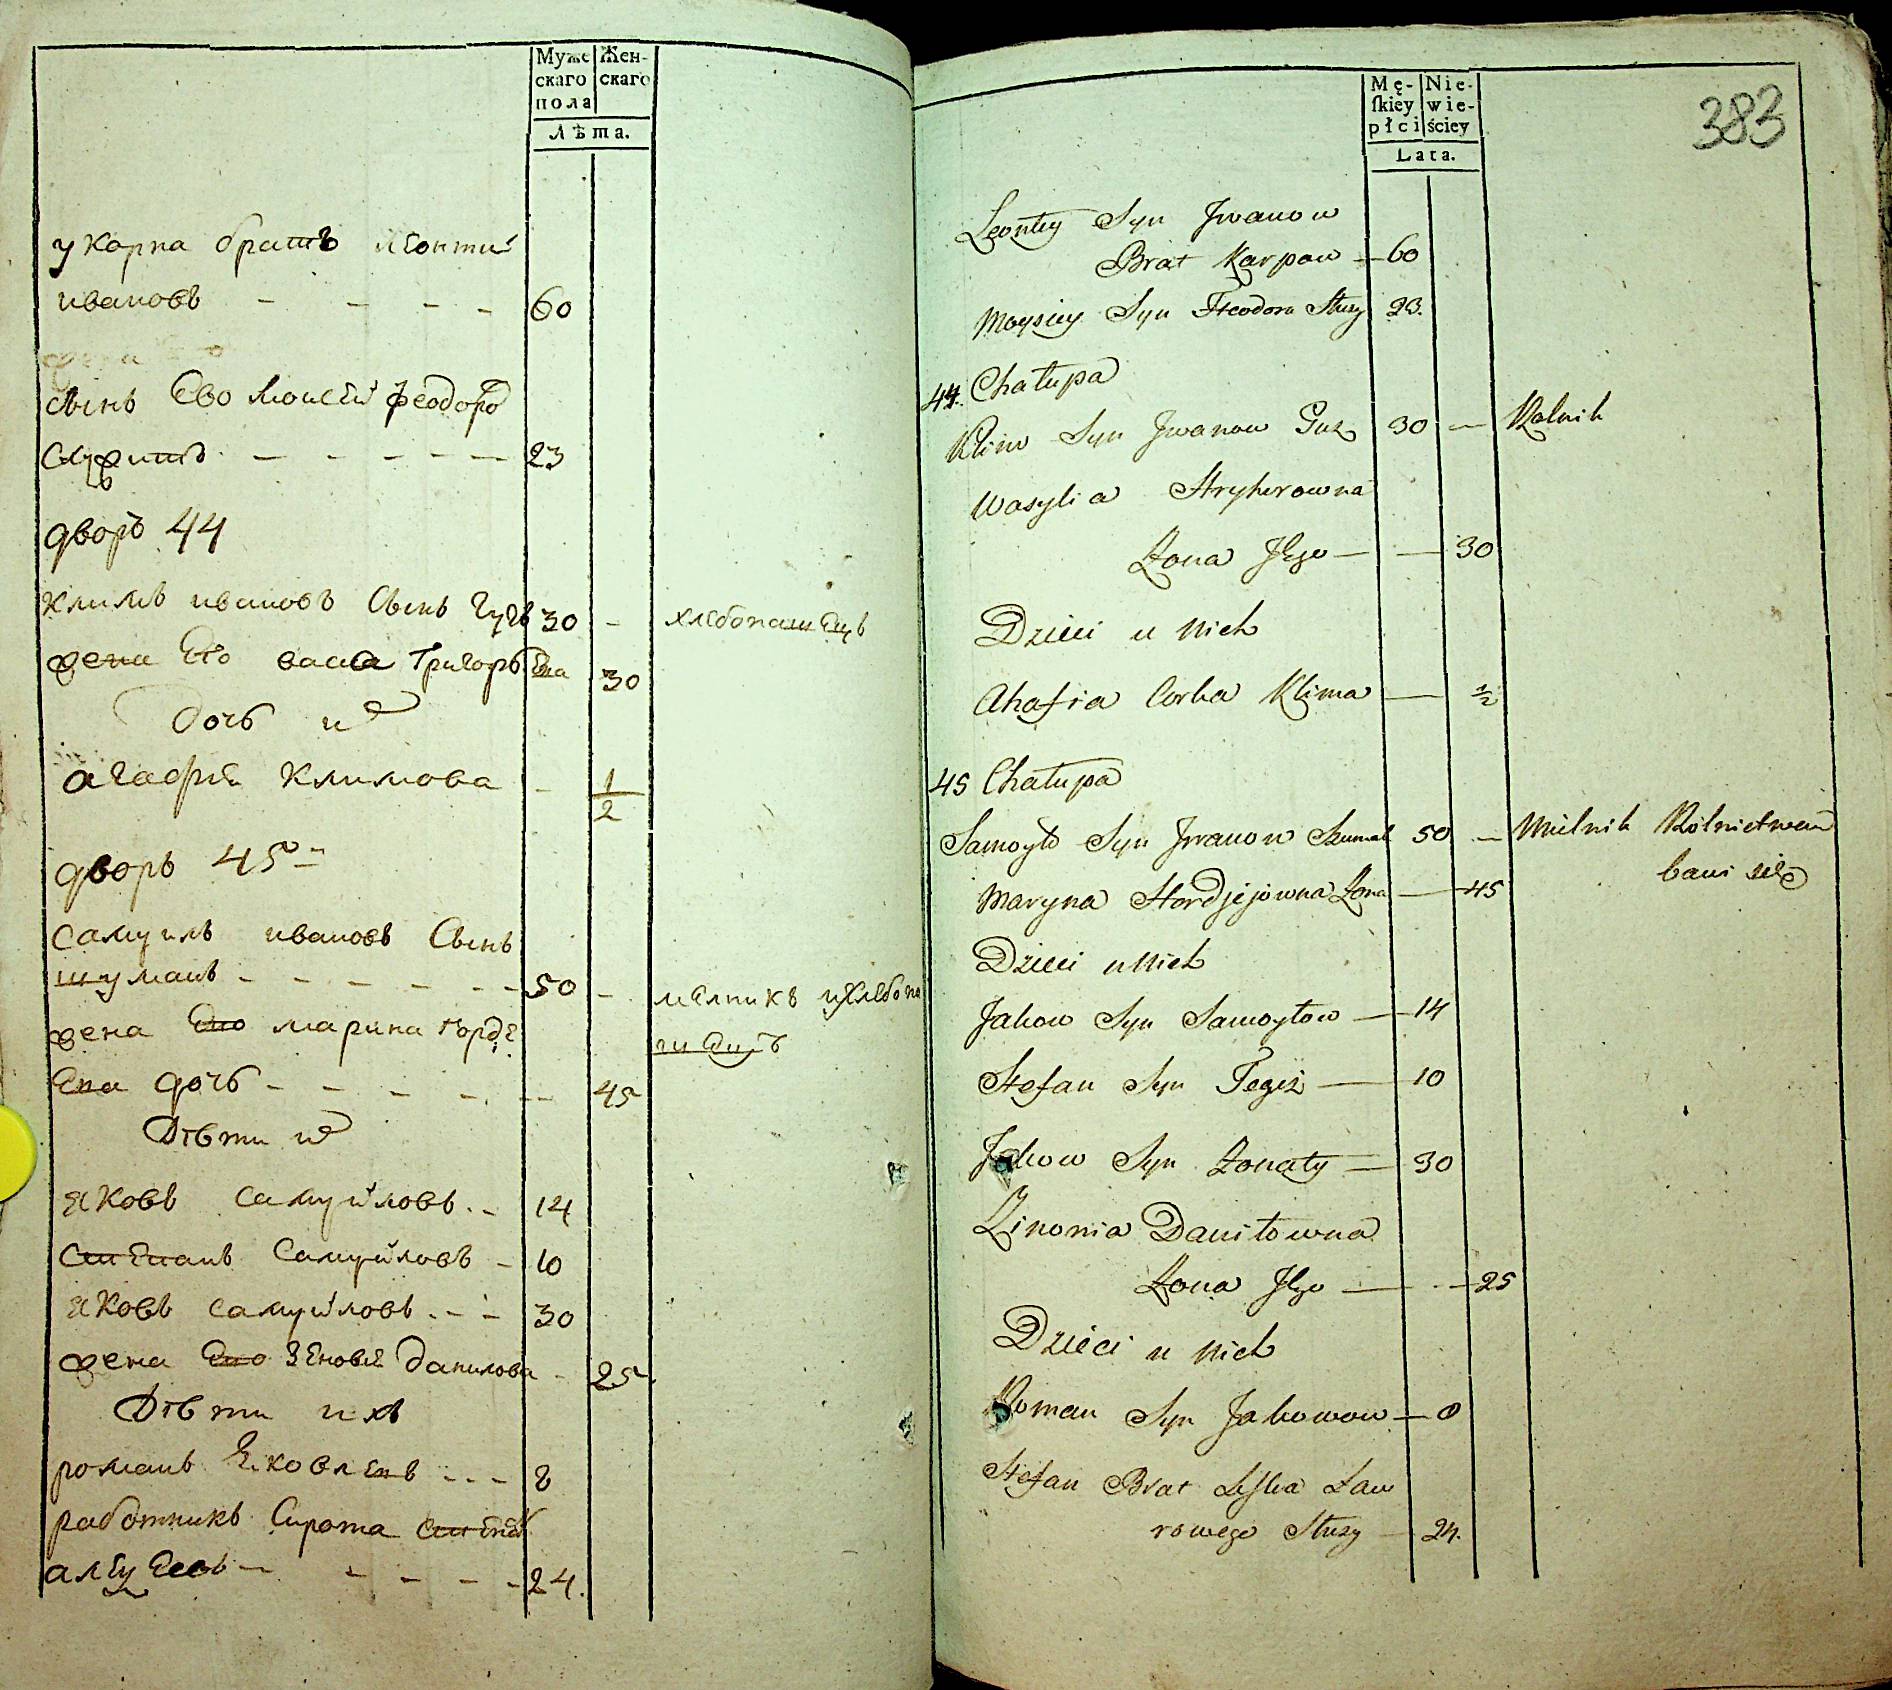 Муже Жен-
скаго скаго
пола
Лѣта.
у карпа братъ леонтиї
ивановъ - - - - 60
сынъ Ево моисей феодоро
служитъ - - - - - - 23
дворъ 44
климъ ивановъ Сынъ гузъ 30 - хлебопашецъ
жена Его васса григорьева 30
дочь их
агафия климова - 1/2
дворъ 45
самуилъ ивановъ Сынъ
шуманъ - - - - - - - 50 - мелникъ и хлебопа
шецъ
жена Его марина горде
ева дочь - - - - - - 45
Дѣти их
яковъ самуйловъ - - 14
степанъ самуйловъ - 10
яковъ самуйловъ - - - 30
жена Его зеновия данилова - 25
Дѣти ихъ
романъ яковлевъ - - - 8
работникъ Сирота степанъ
- - - - - 24.
383
Mę- Nie-
ſkiey wie-
płci ściey
Lata.
Leontey Syn Jwanow
Brat Karpow — 60
Moysiey Syn Fteodora Służy 23.
44. Chałupa
Klim Syn Jwanow Guz 30 — Rolnik
Wasylia Hryherowna
Żona Jego — — 30
Dzieci u Nich
Ahafia Corka Klima — 1/2
45 Chałupa
Samoyło Syn Jwanow Szuman 50 — Mielnik Rolnictwem
bawi się
Maryna Hordjejowna Żona — 45
Dzieci u Nich
Jakow Syn Samoyłow — 14
Stefan Syn Tegiż — 10
Jakow Syn Żonaty — 30
Zinowia Daniłowna
Żona Jego — - — 25
Dzieci u Nich
Roman Syn Jakowow — 8
Stefan Brat
Służy — 24.